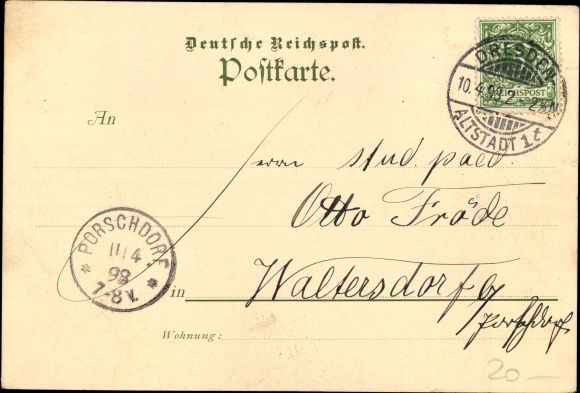 Deutsche Reichspost.
Postkarte.
REICHSPOST
DRESDEN
10.4.99 2-
ALTSTADT 1 t
An
Herrn stud. paed
Otto Fröde
PORSCHDORF
11/4
99
7-8 V.
in Waltersdorf
Porschdorf
Wohnung:
20 —